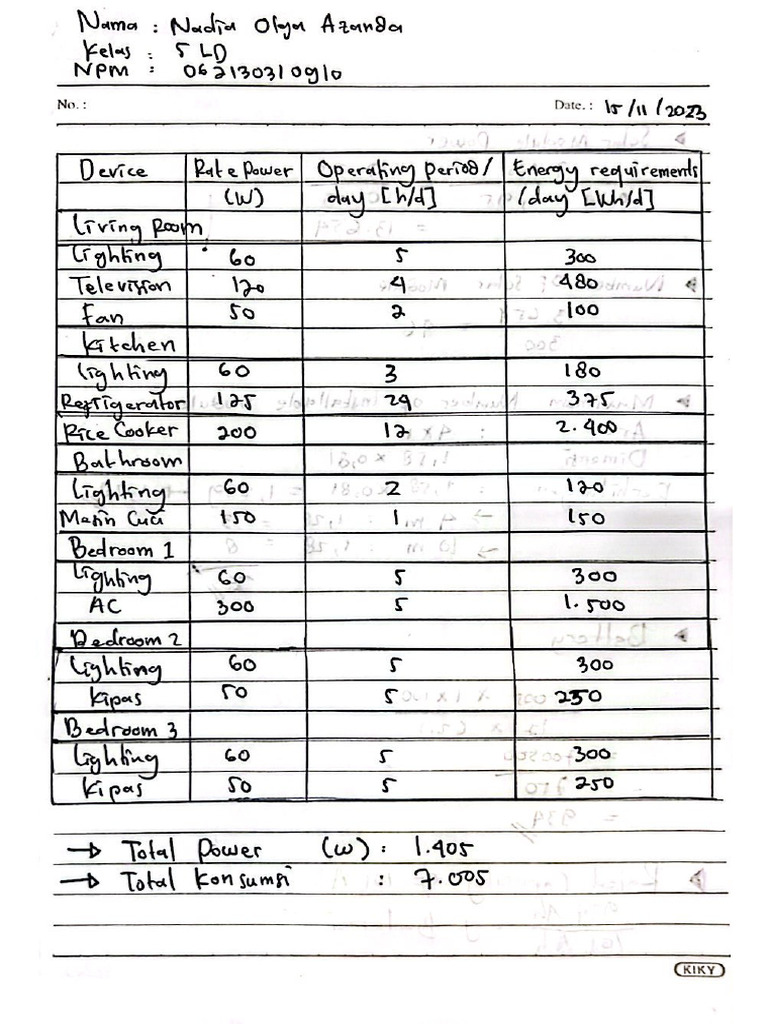 Nama : Nadia Olga Azanda
Kelas : 5 LD
NPM : 062130310910
No. : Date. : 15/11/2023
Device Rate Power Operating period/ Energy requirements
(W) day [h/d] /day [Wh/d]
Living Room
Lighting 60 5 300
Television 120 4 480
Fan 50 2 100
Kitchen
Lighting 60 3 180
Refrigerator 125 24 375
Rice Cooker 200 12 2.400
Bathroom
Lighting 60 2 120
Mesin Cuci 150 1 150
Bedroom 1
Lighting 60 5 300
AC 300 5 1.500
Bedroom 2
Lighting 60 5 300
Kipas 50 5 250
Bedroom 3
Lighting 60 5 300
Kipas 50 5 250
→ Total Power (W) : 1.405
→ Total Konsumsi : 7.005
KIKY